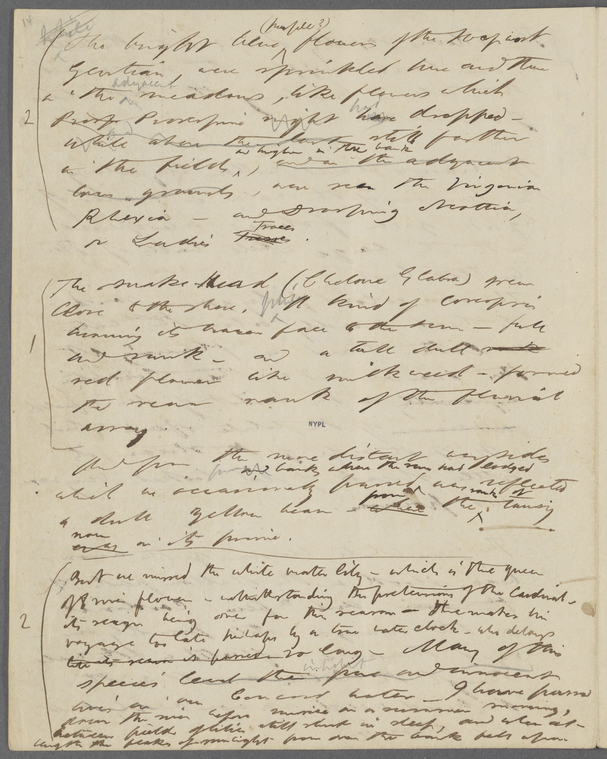 (purple?)
The bright blue flowers of the Soapwort
Gentian were sprinkled here and there
adjacent
in the meadows, like flowers which
2
Proserpine had dropped —
still farther
and higher on the bank
in the fields, and in the adjacent
low grounds, were seen the Virginia
Rhexia — and Drooping Neottia,
or Ladies Traces
Tresses.
The snake Head (Chelone Glabra) grew
close to the shore. A kind of coreopsis
1
turning its brazen face to the sun — full
and rank — and a tall dull
red flower like milkweed — formed
the rear rank of the fluvial
array.
NYPL
And from the more distant waysides
and banks where the sun had lodged
which we occasionally passed was reflected
a dull yellow beam — from the ranks of tansy
now
in its prime.
But we missed the white water lily — which is the queen
2
of River flowers — notwithstanding the pretensions of the Cardinal —
its reign being over for this season — He makes his
voyage too late perhaps by a true water clock — who delays
so long — Many of this
species inhabit
our Concord water — I have passed
down the river before sunrise on a summer morning,
between fields of lilies still shut in sleep, and when at
length the flakes of sunlight from over the bank fell upon